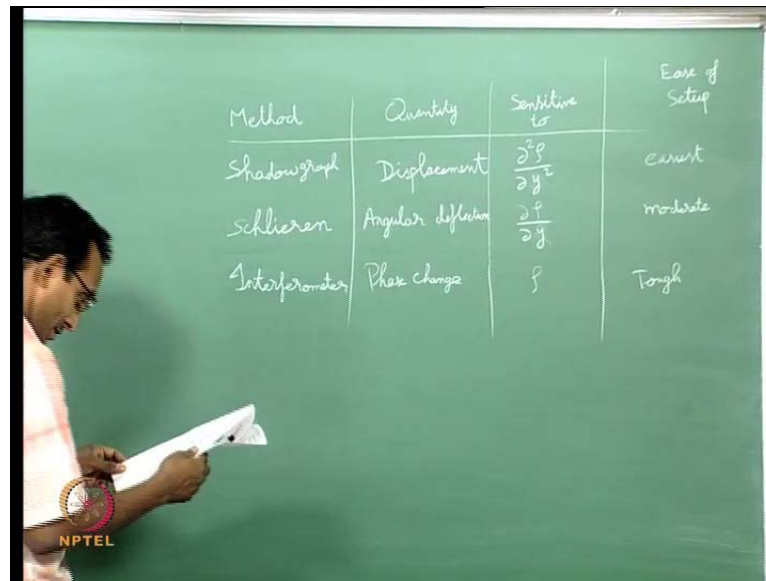 Method Quantity Sensitive to Ease of Setup
Shadowgraph Displacement ∂²ρ/∂y² easiest
Schlieren Angular deflection ∂ρ/∂y moderate
Interferometer Phase change ρ Tough
NPTEL